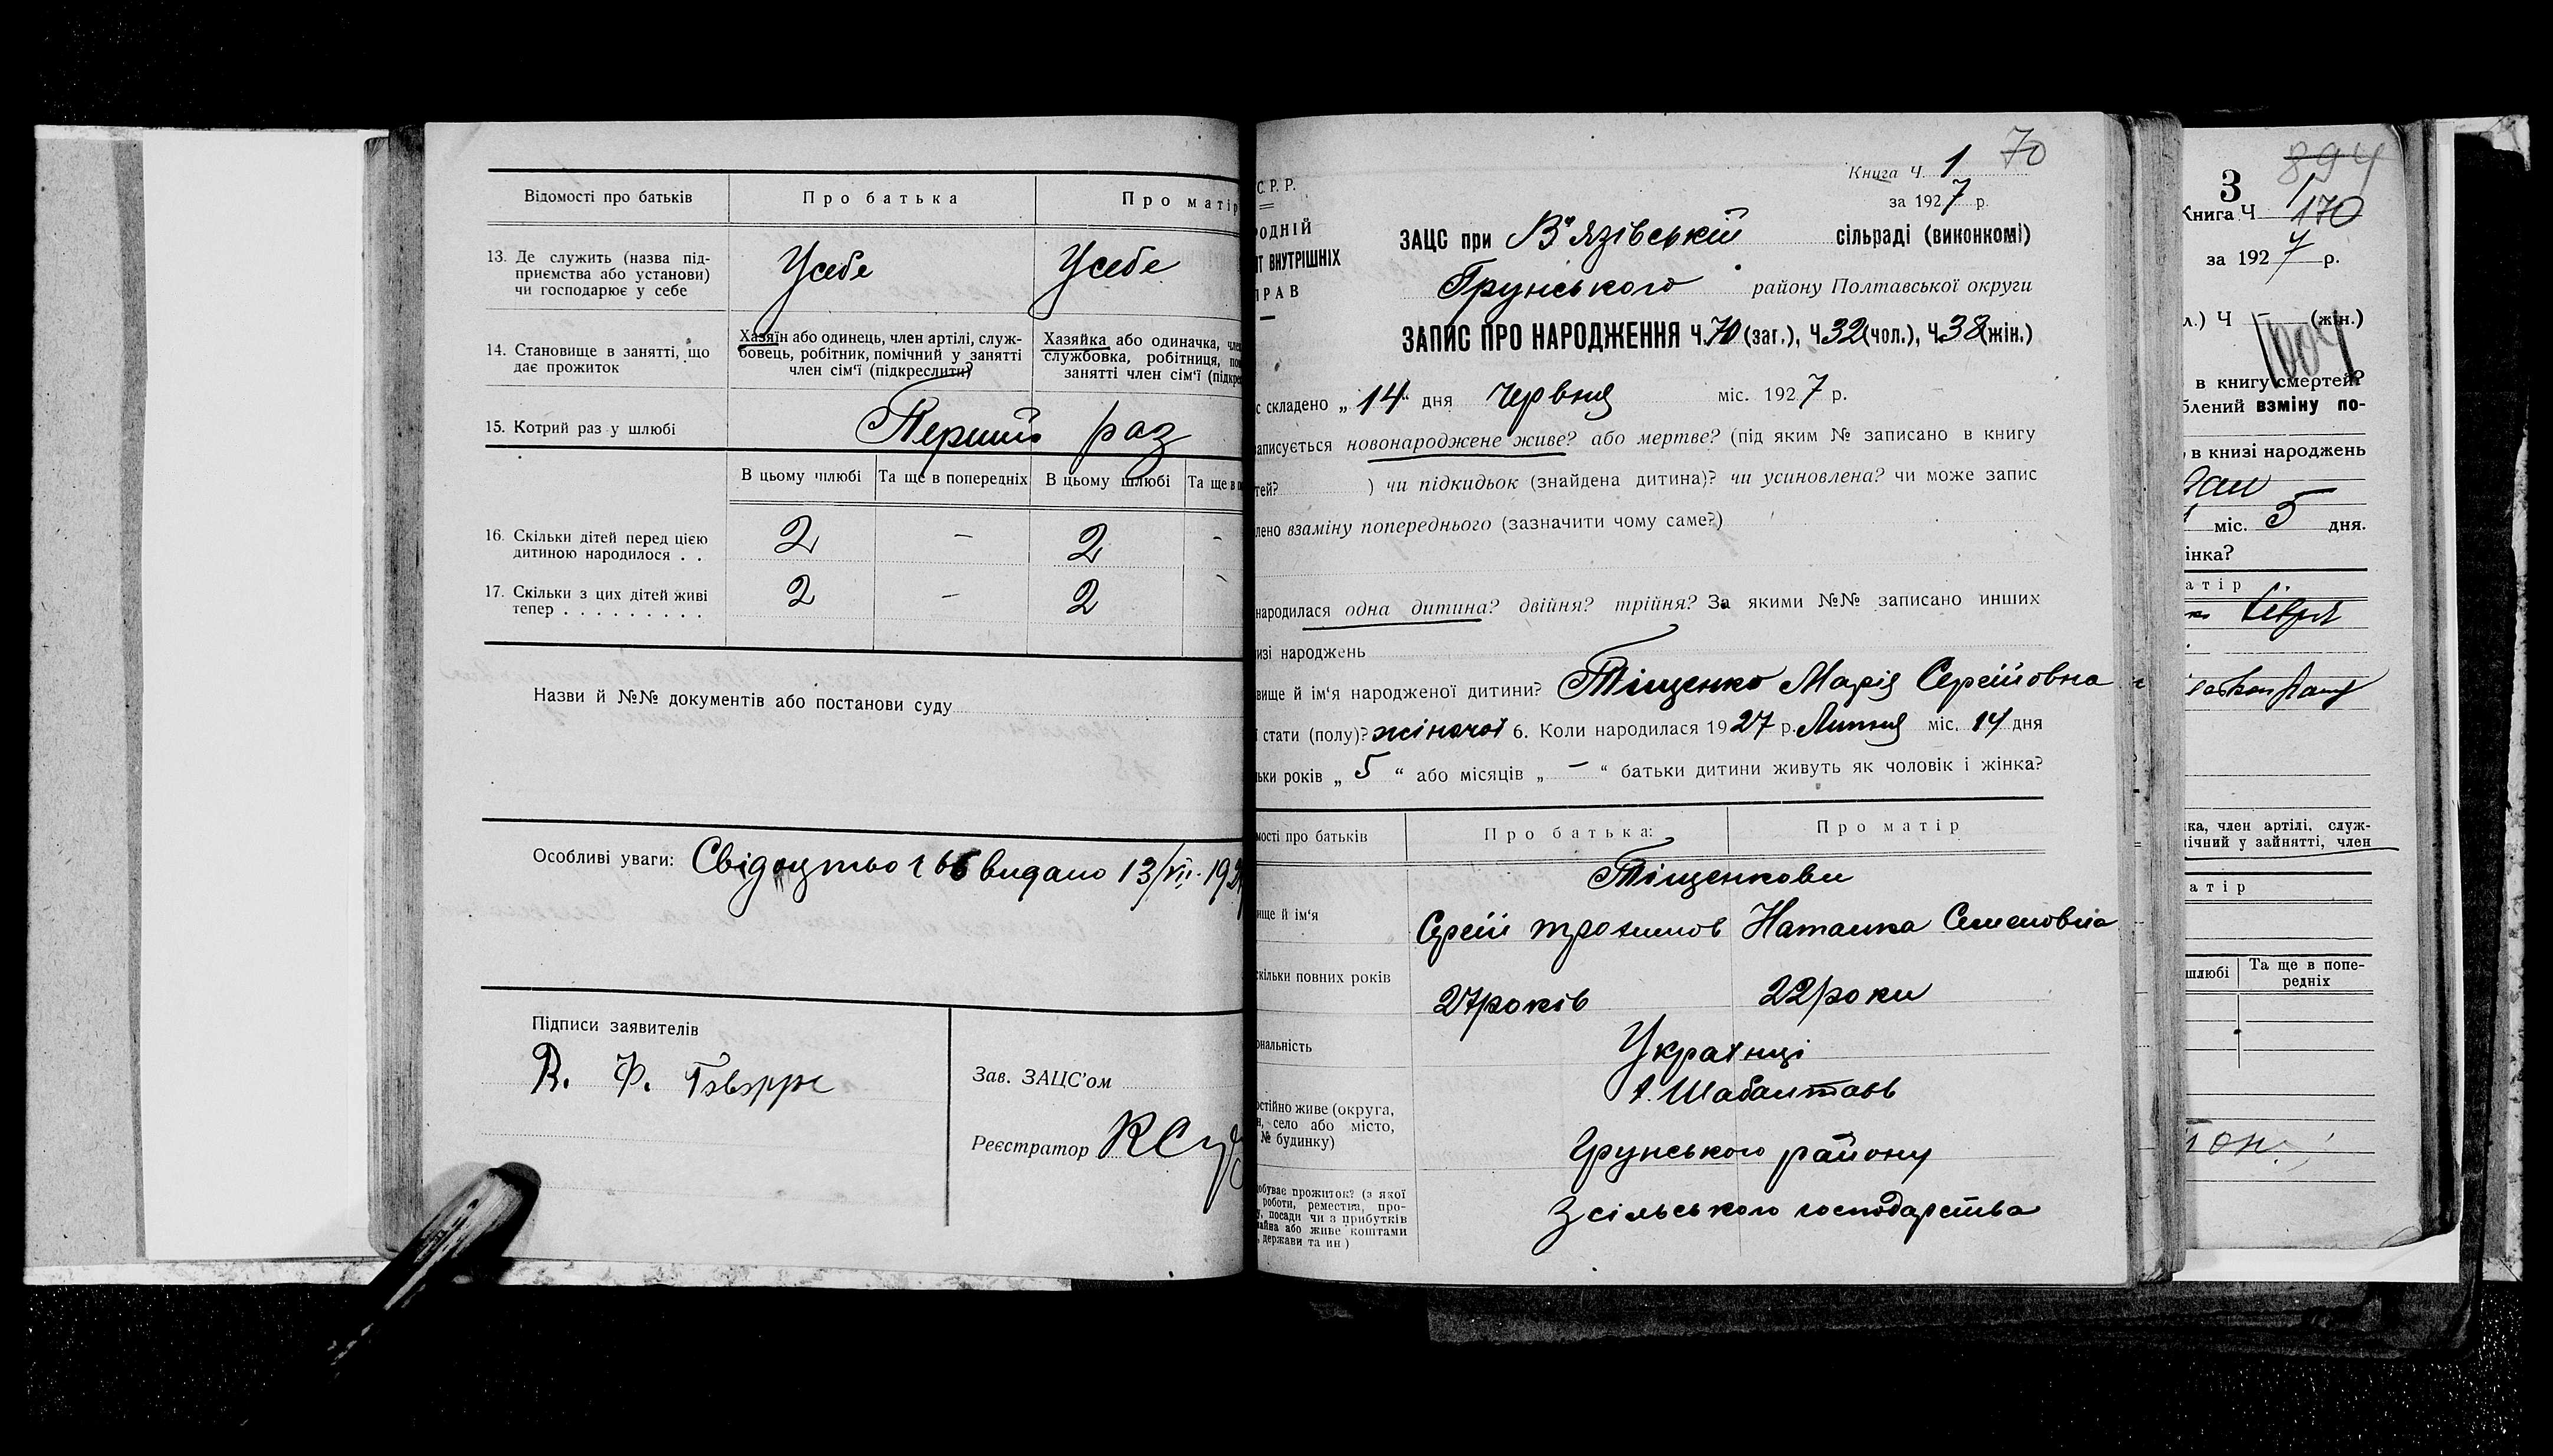 Відомості про батьків
Про батька
Про матір
13. Де служить (назва під-
приємства або установи)
чи господарює у себе
Усебе
Усебе
14. Становище в занятті, що
дає прожиток
Хазяїн або одинець, член артілі, служ-
бовець, робітник, помічний у занятті
член сім'ї (підкреслити)
Хазяйка або одиначка, чле
службовка, робітниця, по
занятті член сім'ї (підкре
15. Котрий раз у шлюбі
Перший раз
В цьому шлюбі
Та ще в попередніх
В цьому шлюбі
Та ще в п
16. Скільки дітей перед цією
дитиною народилося . .
2 - 2 -
17. Скільки з цих дітей живі
тепер . . . . . . . . .
2 - 2 -
Назви й №№ документів або постанови суду
Особливі уваги: Свідоцтво 166 видано 13/VII-192
Підписи заявителів
Зав. ЗАЦС'ом
Реєстратор
70
Книга Ч. 1
за 1927 р.
С.Р.Р.
РОДНІЙ
Т ВНУТРІШНІХ
ПРАВ
ЗАЦС при В'язівській сільраді (виконкомі)
Грунського району Полтавської округи
ЗАПИС ПРО НАРОДЖЕННЯ Ч.70 (заг.), Ч.32 (чол.), Ч.38 (жін.)
с складено „14" дня червня міс. 1927 р.
аписується новонароджене живе? або мертве? (під яким № записано в книгу
тей? ) чи підкидьок (знайдена дитина)? чи усиновлена? чи може запис
лено взаміну попереднього (зазначити чому саме?)
народилася одна дитина? двійня? трійня? За якими №№ записано инших
изі народжень
вище й ім'я народженої дитини? Тіщенко Марія Сергіївна
ї стати (полу)? жіночої 6. Коли народилася 1927 р. Липня міс. 14 дня
ьки років „ 5 " або місяців „ - " батьки дитини живуть як чоловік і жінка?
мості про батьків
Про батька:
Про матір
Тіщенкови
ище й ім'я
Сергій Трохимов
Наталка Семеновна
скільки повних років
27 років
22 роки
ональність
Українці
остійно живе (округа,
н, село або місто,
№ будинку)
х. Шабалтаєв
Грунського району
обуває прожиток? (з якої
роботи, ремества, про-
у, посади чи з прибутків
айна або живе коштами
, держави та ин)
З сільського господарства
894
3
Книга Ч 1
170
за 1927 р.
л.) Ч - (жін.)
1004
в книгу смертей?
блений взміну по-
в книзі народжень
міс. 5 дня.
інка?
атір
ка, член артілі, служ-
ічний у зайнятті, член
атір
шлюбі
Та ще в попе-
редніх